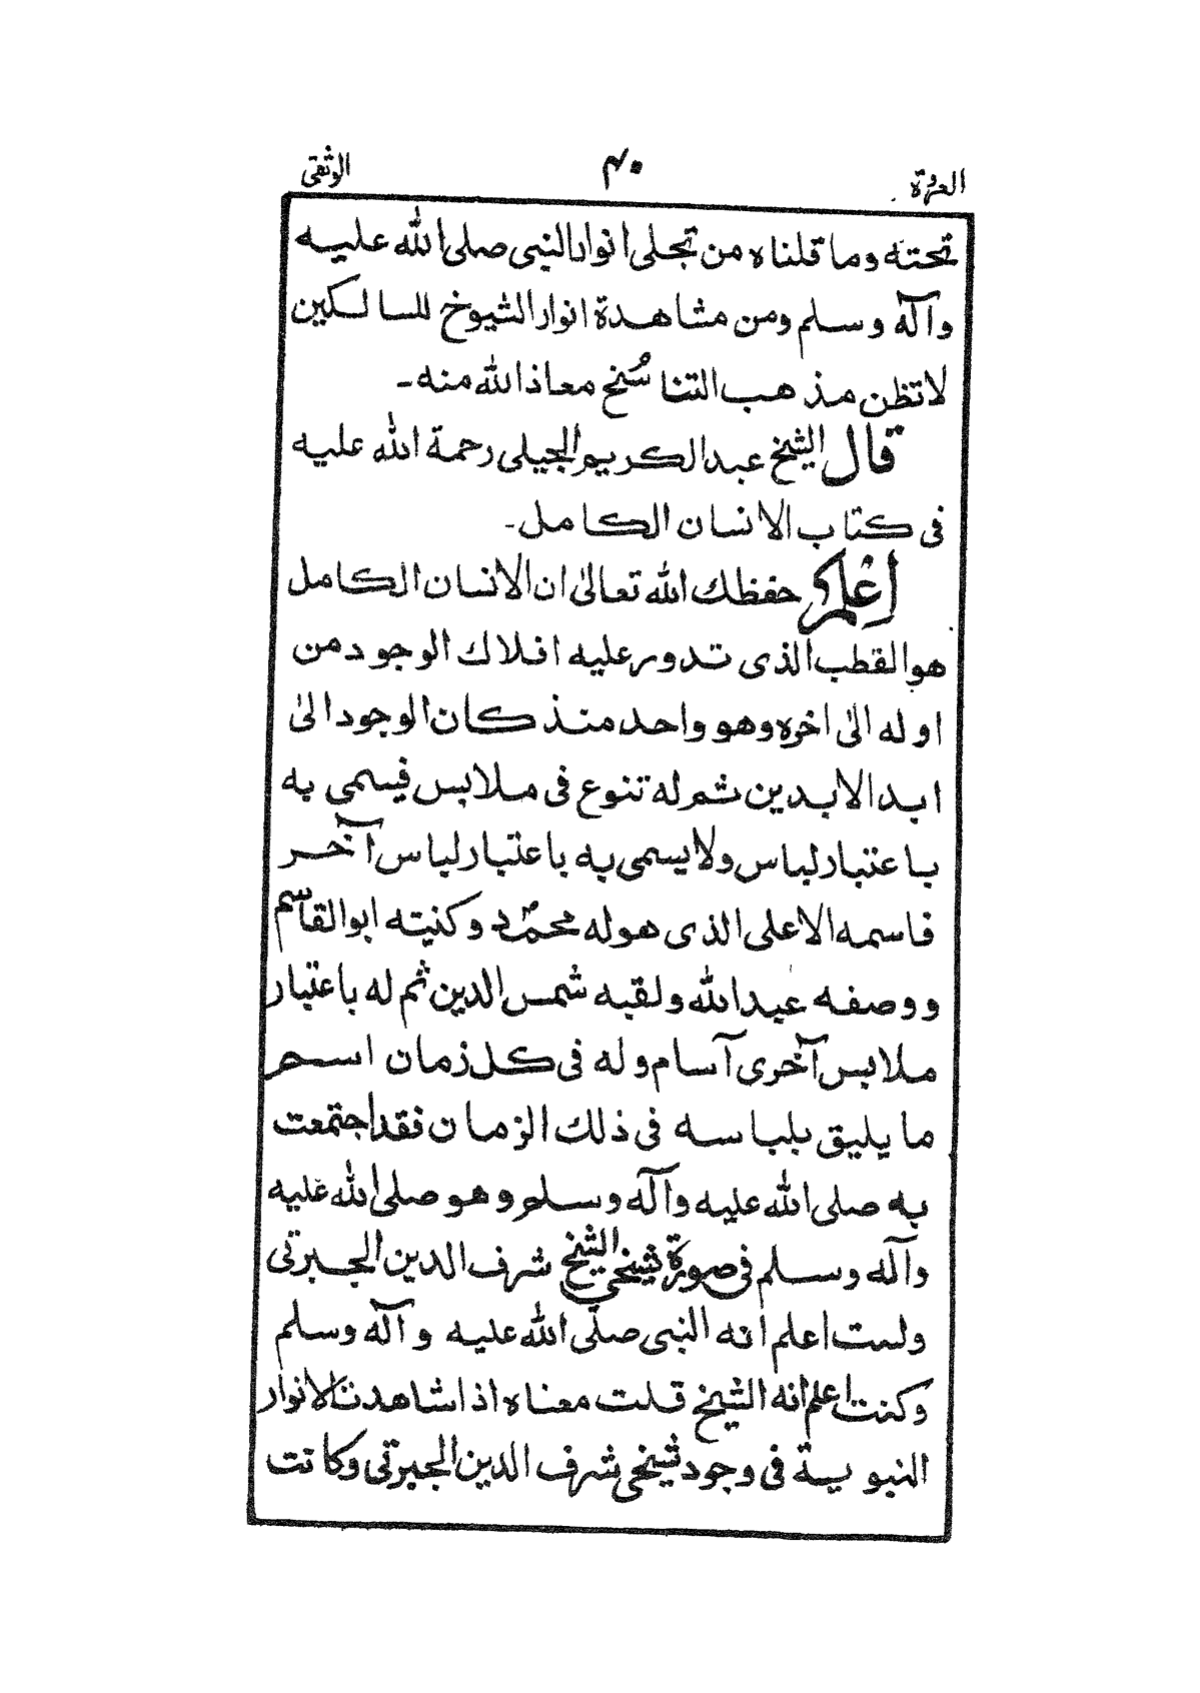 العروة ۴۰ الوثقى
تحته وما قلناه من تجلى انوار النبى صلى الله عليه
وآله وسلم ومن مشاهدة انوار الشيوخ للسالكين
لا تظن مذهب التناسُخ معاذ الله منه۔
قال الشيخ عبد الكريم الجيلى رحمة الله عليه
فى كتاب الانسان الكامل۔
اِعْلم حفظك الله تعالىٰ ان الانسان الكامل
هو القطب الذى تدور عليه افلاك الوجود من
اوله الىٰ اخره وهو واحد منذ كان الوجود الىٰ
ابد الابدين ثم له تنوع فى ملابس فيسمى به
باعتبار لباس ولا يسمى به باعتبار لباس آخر
فاسمه الاعلى الذى هو له محمّد وكنيته ابو القاسم
ووصفه عبد الله ولقبه شمس الدين ثم له باعتبار
ملابس آخرى آسام وله فى كل زمان اسم
ما يليق بلباسه فى ذلك الزمان فقد اجتمعت
به صلى الله عليه وآله وسلم وهو صلى الله عليه
وآله وسلم فى صورة شيخى الشيخ شرف الدين الجبرتى
ولست اعلم انه النبى صلّى الله عليه وآله وسلم
وكنت اعلم انه الشيخ قلت معناه اذا شاهدنا الانوار
النبوية فى وجود شيخى شرف الدين الجبرتى وكانت